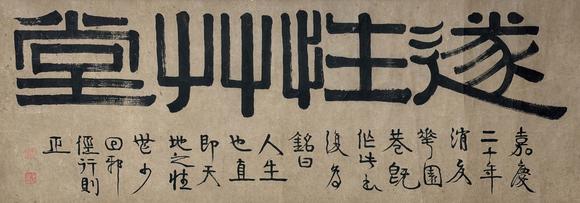 遂性艸堂
嘉慶
二十年
消夏
華園
巷既
作此書
復為
銘曰
人生
也直
即天
地之性
世少
回邪
徑行則
正